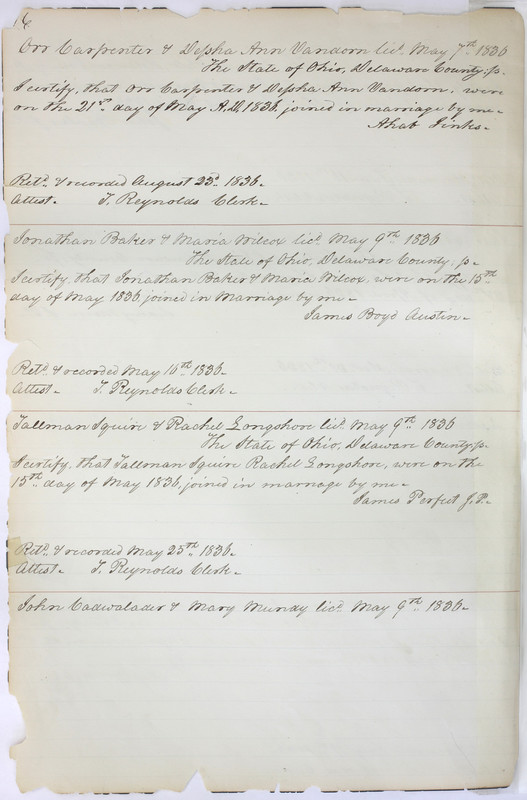 16
Orr Carpenter & Depha Ann Vandorn licd. May 7th 1836
The State of Ohio, Delaware County; ss.
I certify, that Orr Carpenter & Depha Ann Vandorn, were
on the 21st day of May A.D. 1836, joined in marriage by me -
Ahab Jinks -
Retd. & recorded August 23d. 1836 -
Attest - T. Reynolds Clerk -
Jonathan Baker & Maria Wilcox licd. May 9th 1836
The State of Ohio, Delaware County; ss -
I certify, that Jonathan Baker & Maria Wilcox, were on the 15th
day of May 1836 joined in Marriage by me -
James Boyd Austin -
Retd. & recorded May 16th 1836 -
Attest - T. Reynolds Clerk -
Tallman Squire & Rachel Longshore licd. May 9th 1836
The State of Ohio, Delaware County; ss.
I certify, that Tallman Squire Rachel Longshore, were on the
15th day of May 1836, joined in marriage by me -
James Perfect J.P. -
Retd. & recorded May 25th 1836 -
Attest - T. Reynolds Clerk -
John Cadwalader & Mary Mundy licd. May 9th 1836 -